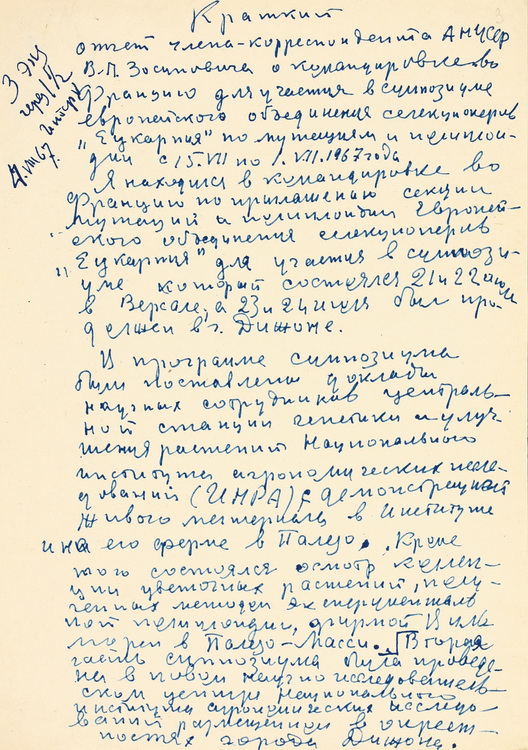 Краткий
отчет члена-корреспондента АН УССР
В.П. Зосимовича о командировке во
Францию для участия в симпозиуме
европейского объединения селекционеров
"Еукарпия" по мутациям и полиплои-
дии с 15.VI по 1.VII.1967 года
3 экз
через 1 1/2
4.VIII 67.
Я находился в командировке во
Франции по приглашению секции
мутаций и полиплоидии Европей-
ского объединения селекционеров
"Еукарпия" для участия в симпози-
уме который состоялся 21 и 22 июня
в Версале, а 23 и 24 июня был про-
должен в г. Дижоне.
В программе симпозиума
были поставлены доклады
научных сотрудников централь-
ной станции генетики и улуч-
шения растений Национального
института агрономических иссле-
дований (ИНРА) с демонстрацией
живого материала в Институте
и на его ферме в Палезо. Кроме
того состоялся осмотр коллек-
ции цветочных растений, полу-
ченных методом эксперименталь
ной полиплоидии, фирмой
в Палезо-Масси. Вторая
часть симпозиума была проведе-
на в новом научно исследователь-
ском центре национального
института агрономических исследо-
ваний размещенном в окрест-
ностях города Дижона.